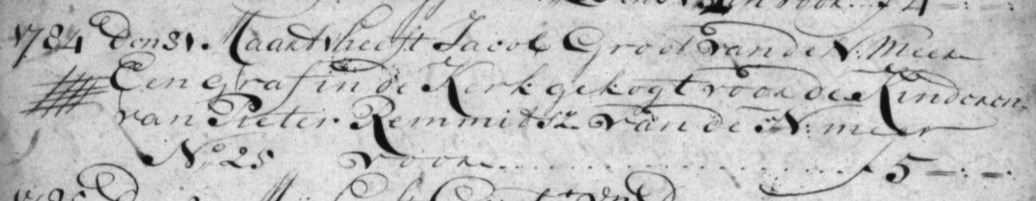 voor ... f 4 -:-:
1784 den 31 Maart heeft Jacob Groot van de N: Meer
Een graf in de Kerk gekogt voor de Kinderen
van Pieter Remmitsz van de N: meer
No 25 voor ........ f 5 -:-: